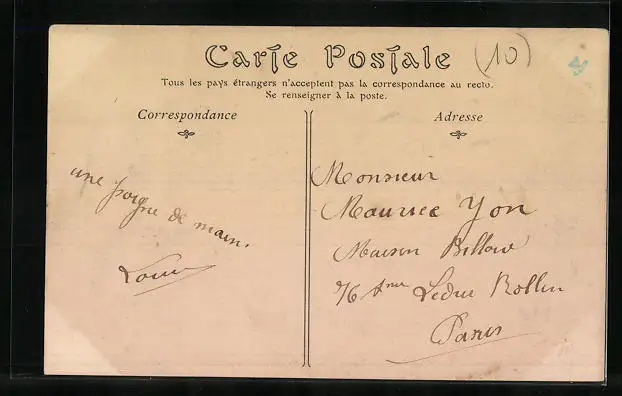 Carte Postale
(10)
Tous les pays étrangers n'acceptent pas la correspondance au recto.
Se renseigner à la poste.
Correspondance
Adresse
une poigne de main.
Louis
Monsieur
Maurice Yon
Maison
76 Ledru Rollin
Paris